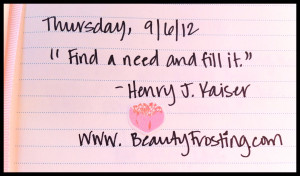 Thursday, 9/6/12
"Find a need and fill it."
- Henry J. Kaiser
www.BeautyFrosting.com